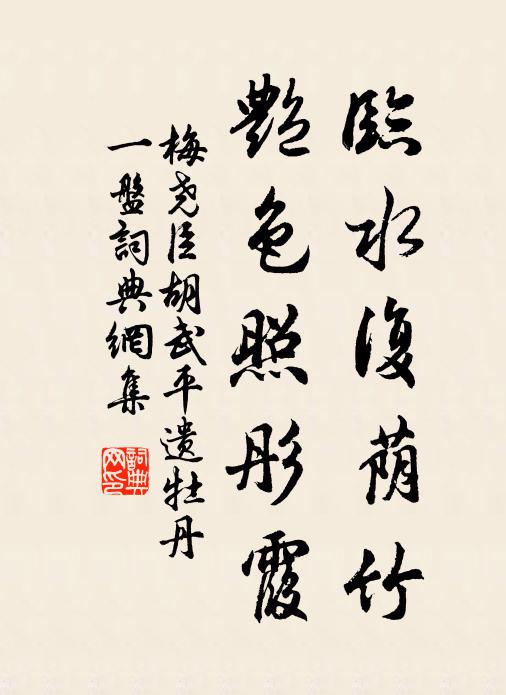 臨水復荫竹
艷色照彤霞
梅尧臣胡武平遗牡丹
一盤詞典網集
詞典网印